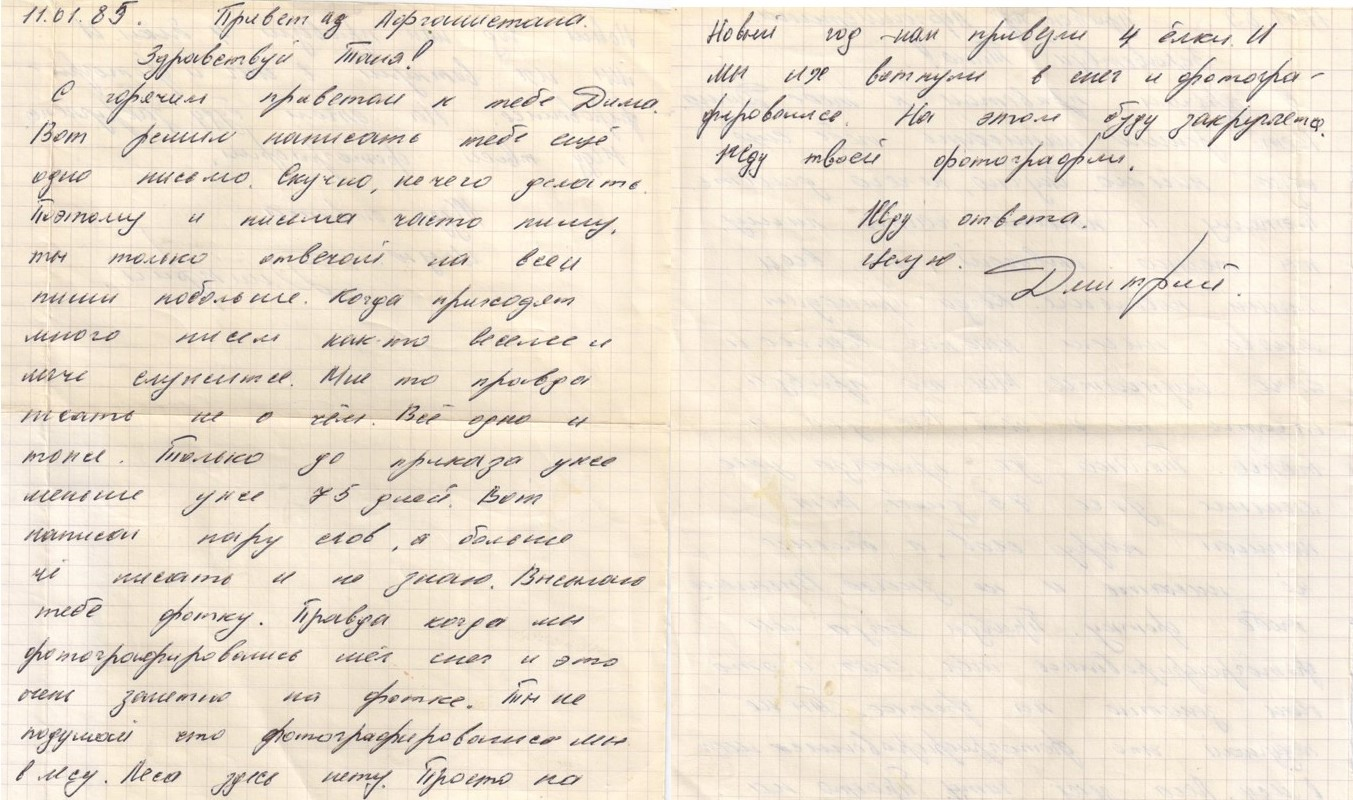 11.01.85. Привет из Афганистана.
Здравствуй Таня!
С горячим приветом к тебе Дима.
Вот решил написать тебе ещё
одно письмо. Скучно, нечего делать.
Поэтому и письма часто пишу,
ты только отвечай на все и
пиши побольше. Когда приходят
много писем как-то веселее и
легче служится. Мне то правда
писать не о чём. Всё одно и
тоже. Только до приказа уже
меньше уже 75 дней. Вот
написал пару слов, а больше
чё писать и не знаю. Высылаю
тебе фотку. Правда когда мы
фотографировались шёл снег и это
очень заметно на фотке. Ты не
подумай что фотографировались мы
в лесу. Леса здесь нету. Просто на
Новый год нам привезли 4 ёлки. И
мы их воткнули в снег и фотогра-
фировались. На этом буду закругляться.
Жду твоей фотографии.
Жду ответа.
Целую. Дмитрий.